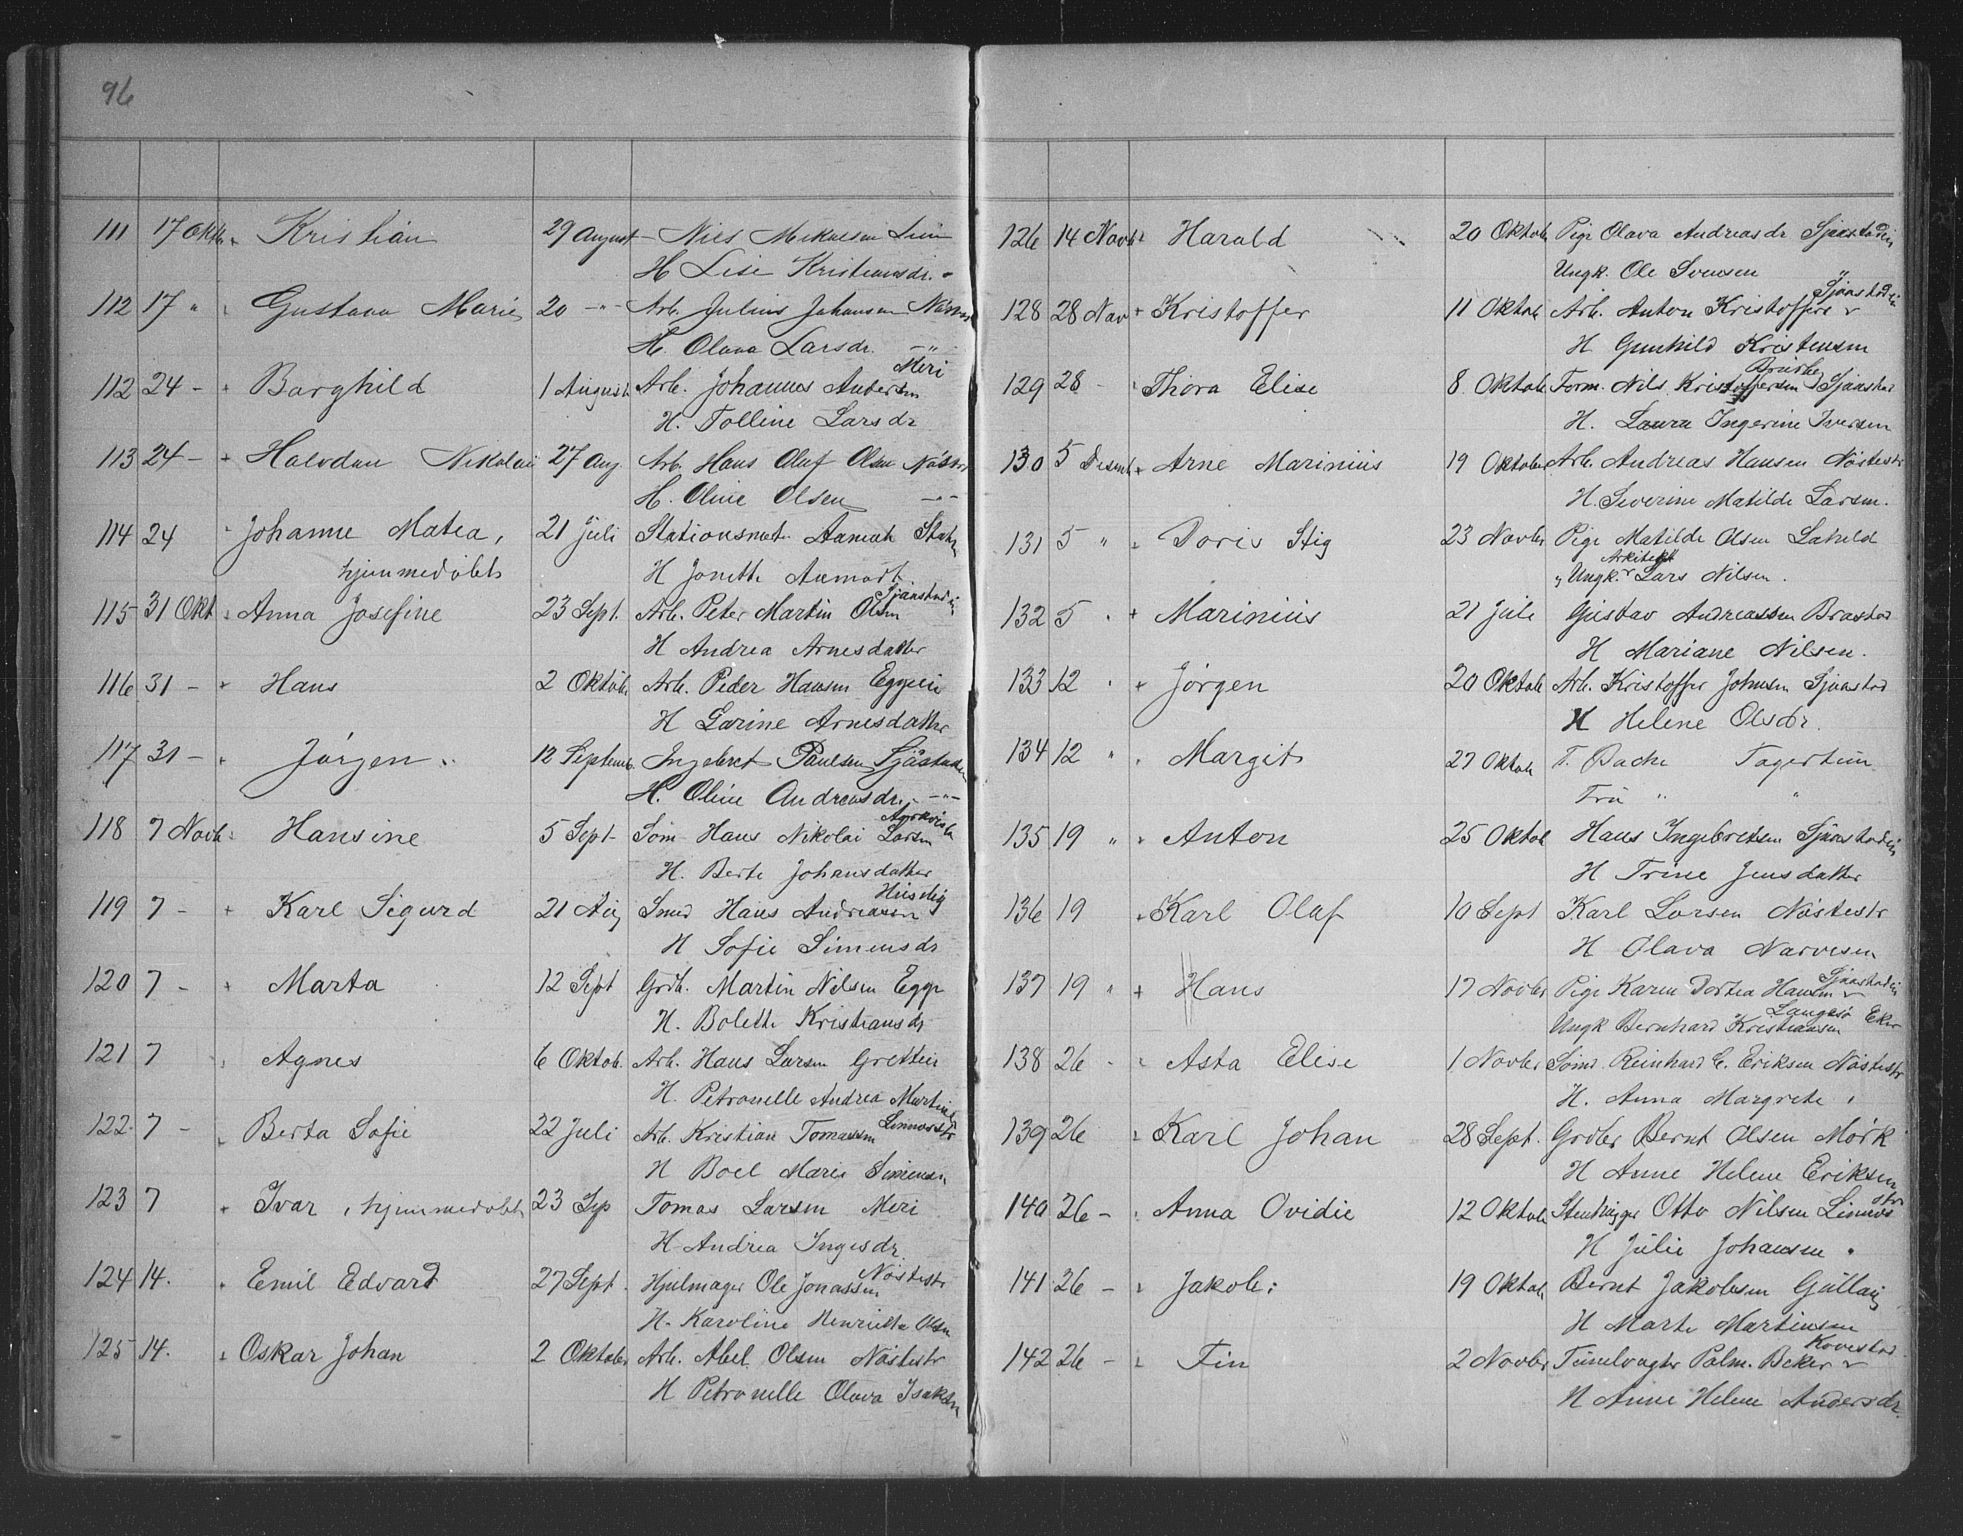 96
111 17 Oktb. Kristian 29 August Nils Mikalsen Lien
H Lise Kristiansdr.
112 17 " Gustava Marie 20 -"- Arb. Julius Johansen
H. Olava Larsdr. -"-
Meri
112 24 - Borghild 1 August Arb. Johannes Andersen
H. Tolline Larsdr
113 24 - Halvdan Nikolai 27 Aug. Arb. Hans Olaf Olsen Nöstestr
H. Oline Olsen -"-
114 24 Johanne Matea, 21 Juli Stationsmest. Aamodt
hjemmedöbt H Jonette Aamodt
Sjaastadein
115 31 Okt Anna Josefine 23 Sept. Arb. Peter Martin Olsen
H Andrea Arnesdatter
116 31 - Hans 2 Oktob. Arb. Peder Hansen Eggeie
H Garine Arnesdatter
117 31 - Jörgen 12 Septemb. Ingebret Paulsen Sjåstadein
H. Oline Andreasdr. -"-
118 7 Novb. Hansine 5 Sept. Söm Hans Nikolai Larsen
H. Berte Johansdatter
119 7 - Karl Sigurd 21 Aug Smed Hans Andreasen
H Sofie Simensdr
120 7 - Marta 12 Sept Grdb. Martin Nilsen Egge
H. Bolette Kristiansdr
121 7 Agnes 6 Oktob. Arb. Hans Larsen Gretteie
H. Petronelle Andrea Martins
122. 7 - Berta Sofie 22 Juli Arb. Kristian Tomassen Linnesstr
H Boel Marie Simensen
123 7 Ivar, hjemmedöbt 23 Sep Tomas Larsen Meri
H Andrea Ingesdr.
124 14. Emil Edvard 27 Sept. Hjulmager Ole Jonassen Nöstestr
H. Karoline Henriette Olsen
125 14. Oskar Johan 2 Oktober Arb. Abel Olsen Nöstestr
H Petronelle Olava Isaksen
126 14 Novb. Harald 20 Oktob Pige Olava Andreasdr Sjaastadein
Ungk. Ole Svensen "
Sjaastadein
128 28 Nov Kristoffer 11 Oktob Arb. Anton Kristoffers
H Gunhild Kristensen
129 28 - Thora Elise 8 Oktob Form. Nils Kristoffersen Sjaastad
H. Laura Ingerine Iversen
130 5 Desemb. Arne Marinius 19 Oktober Arb. Andreas Hansen Nöstestr
H. Severine Matilde Larsen.
131 5 " Doris Stig 23 Novbr Pige Matilde Olsen
Arkitekt
" Ungk. Lars Nilsen.
132 5 Marinius 21 Juli Gustav Andreassen Brastad
H Mariane Nilsen.
133 12 Jörgen 20 Oktob Arb. Kristoffer Johnsen Sjaastad
H Helene Olsdr.
134 12 " Margit 27 Oktob T. Bache Fagertun
Fru " "
135 19 " Anton 25 Oktob Hans Ingebretsen Sjaastadein
H Trine Jensdatter
136 19 Karl Olaf 10 Sept Karl Larsen Nöstestr
H Olava Narvesen
137 19 " Hans 17 Novbr Pige Karen Dortea Hansen Sjaastadein
Langesö
Ungk Bernhard Kristiansen Eker
138 26 Asta Elise 1 Novbr Sömd. Reinhard E. Eriksen Nöstestr
H. Anna Margrete
139 26 Karl Johan 28 Sept. Grdbr Bernt Olsen Mörk
H Anne Helene Eriksen
140 26 - Anna Ovidie 12 Oktob Stenhugger Otto Nilsen Linnesstr
H Julie Johansen.
141 26 - Jakob: 19 Oktob Bernt Jakobsen Gullaug
H Marte Martinsen
142 26 - Fin 2 Novbr Tunelvagter Palm. Beker
H Anne Helene Andersdr.